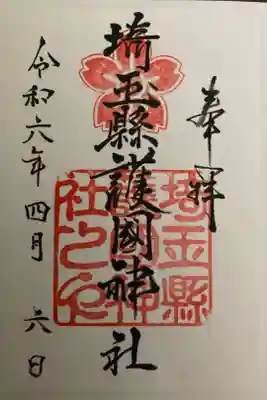 奉拝
埼玉縣護國神社
埼玉縣護國神社之印
令和六年四月六日